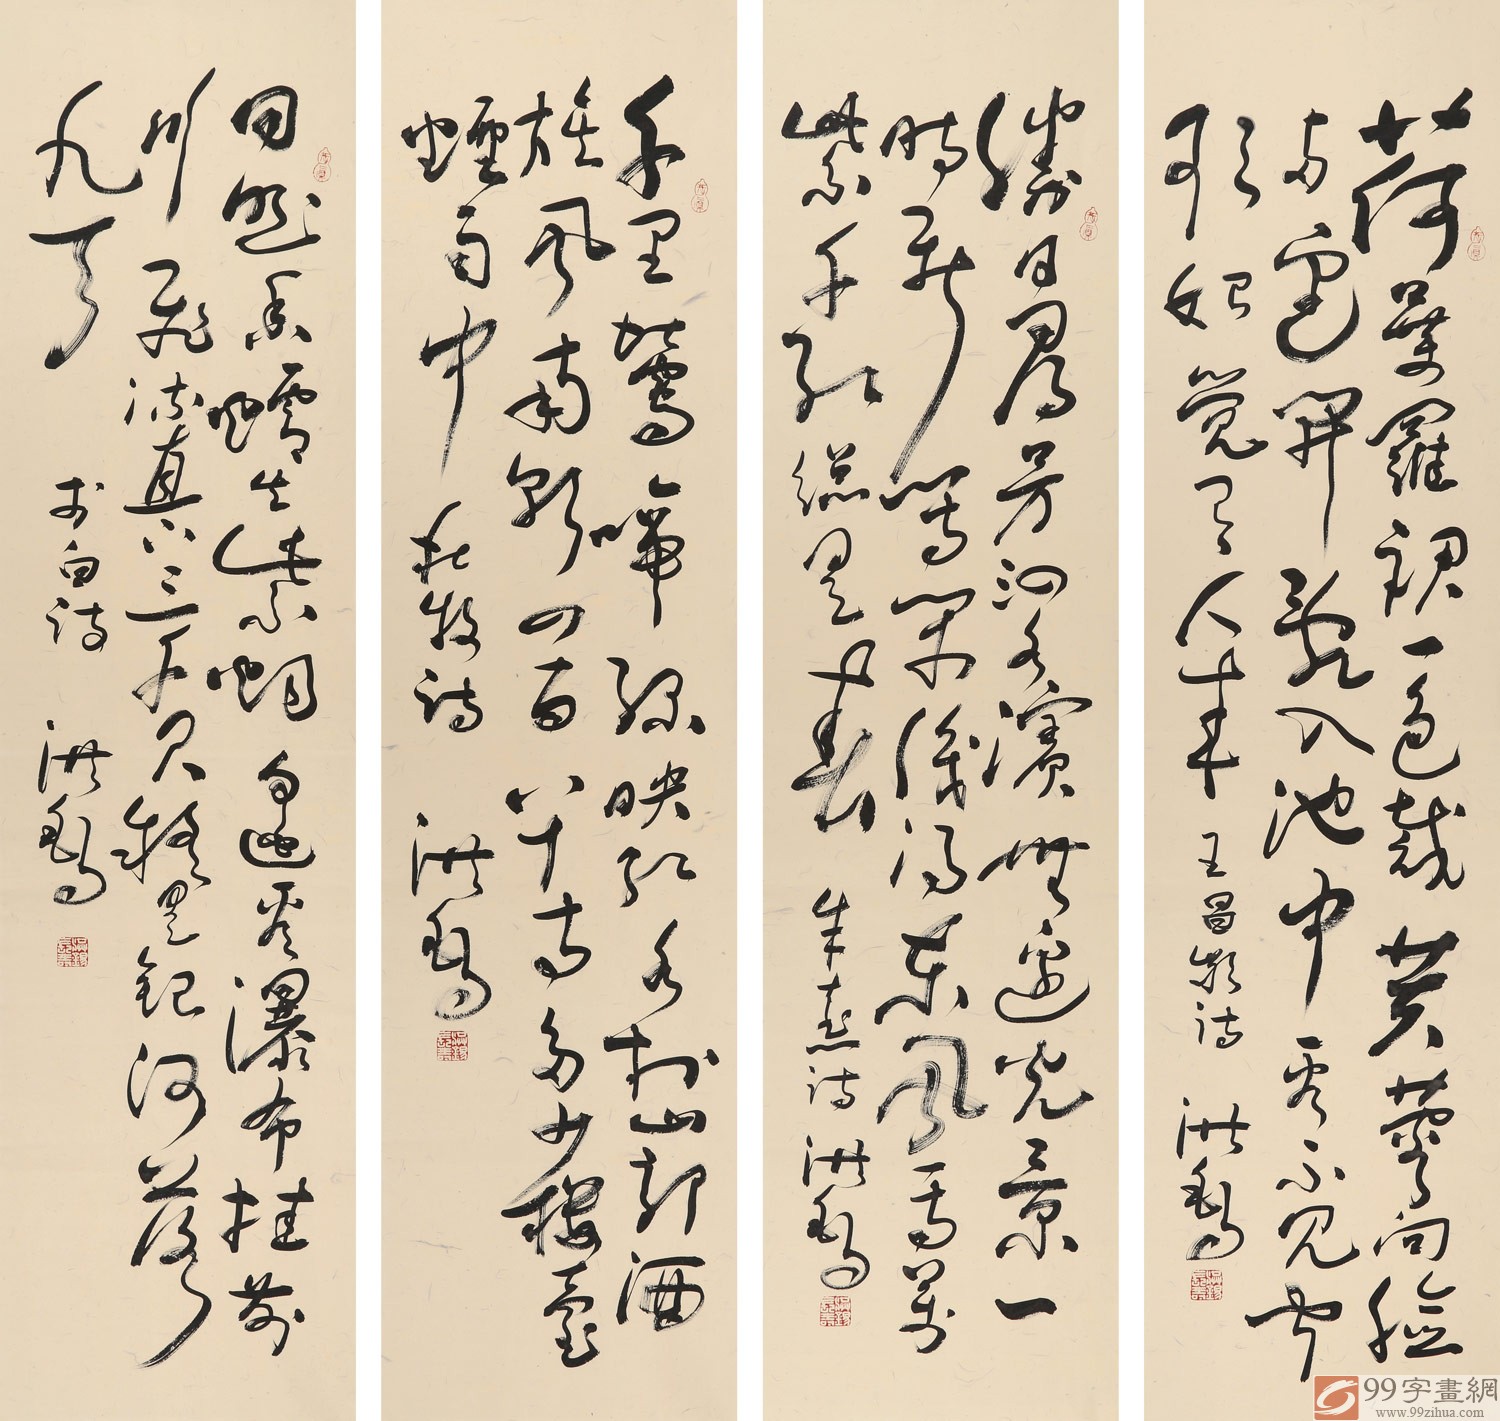 荷葉羅裙一色裁芙蓉向臉
兩邊開亂入池中看不見聞
歌始覺有人來 王昌齡詩 洪
勝日尋芳泗水濱無邊光景一
時新等閑識得東風面萬
紫千紅總是春 朱熹詩 洪
千里鶯啼綠映紅水村山郭酒
旗風南朝四百八十寺多少樓臺
煙雨中 杜牧詩 洪
日照香爐生紫煙遙看瀑布掛前
川飛流直下三千尺疑是銀河落
九天 李白詩 洪
99字畫網
www.99zihua.com